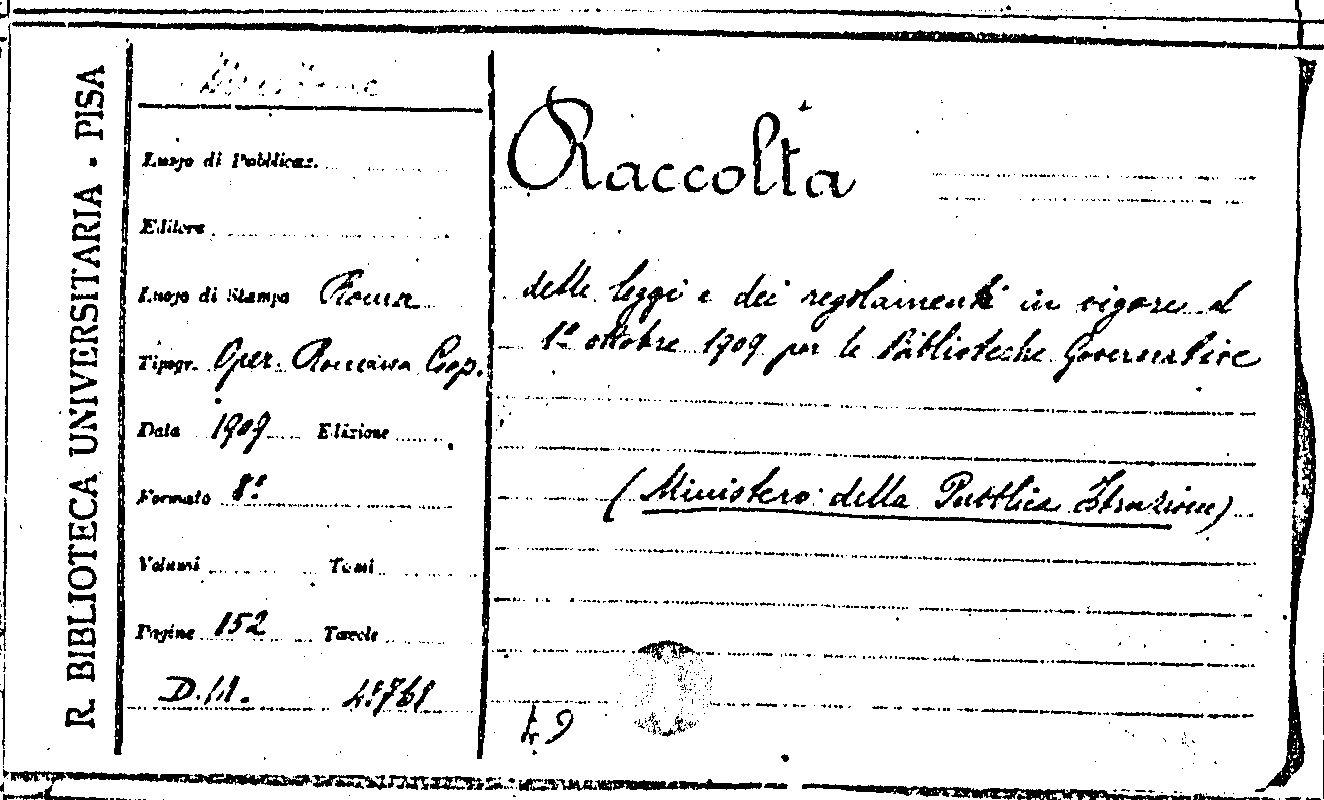 R. BIBLIOTECA UNIVERSITARIA - PISA
Luogo di Pubblicaz.
Editore
Luogo di Stampa Roma
Tipogr. Oper. Romana Coop.
Data 1909 Edizione
Formato 8º
Volumi Tomi
Pagine 152 Tavole
Raccolta
delle leggi e dei regolamenti in vigore al
1º ottobre 1909 per le Biblioteche Governative
(Ministero della Pubblica Istruzione)